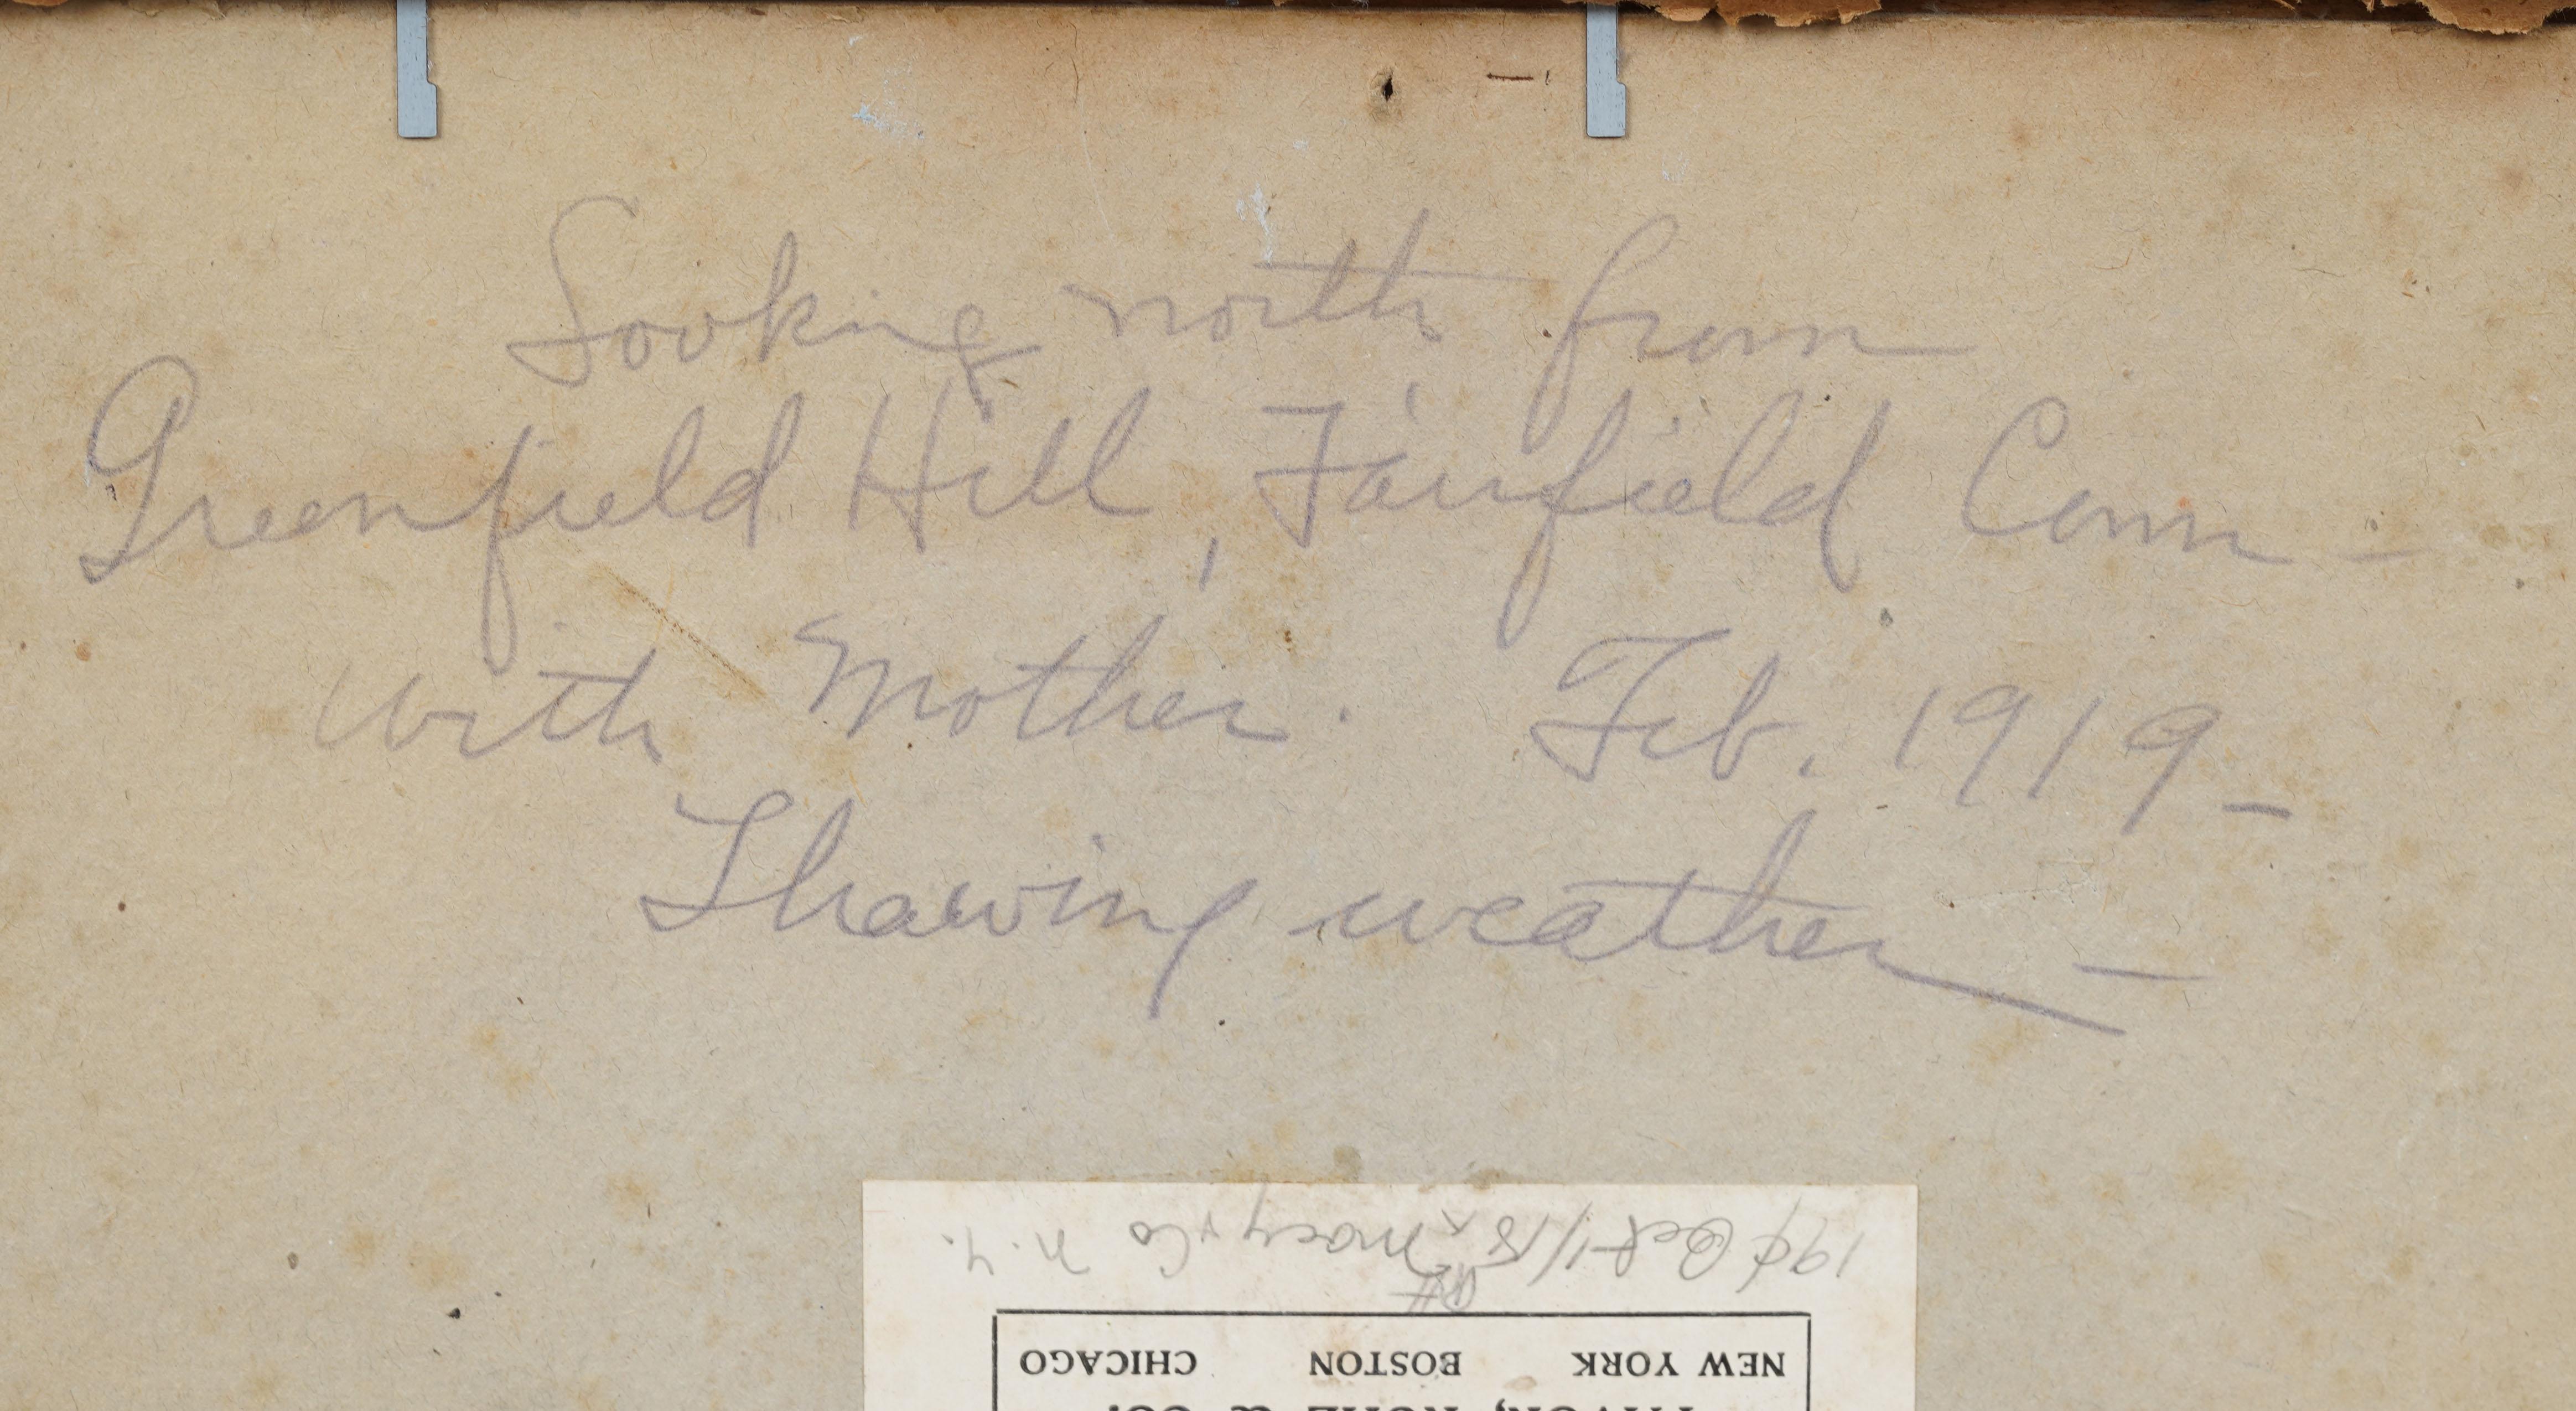 Looking north from
Greenfield Hill, Fairfield Conn –
with Mother. Feb. 1919 –
Thawing weather –
FAVOR, RUHL & CO.
NEW YORK BOSTON CHICAGO
19¢ Oct 1/18 Macy & Co N.Y.